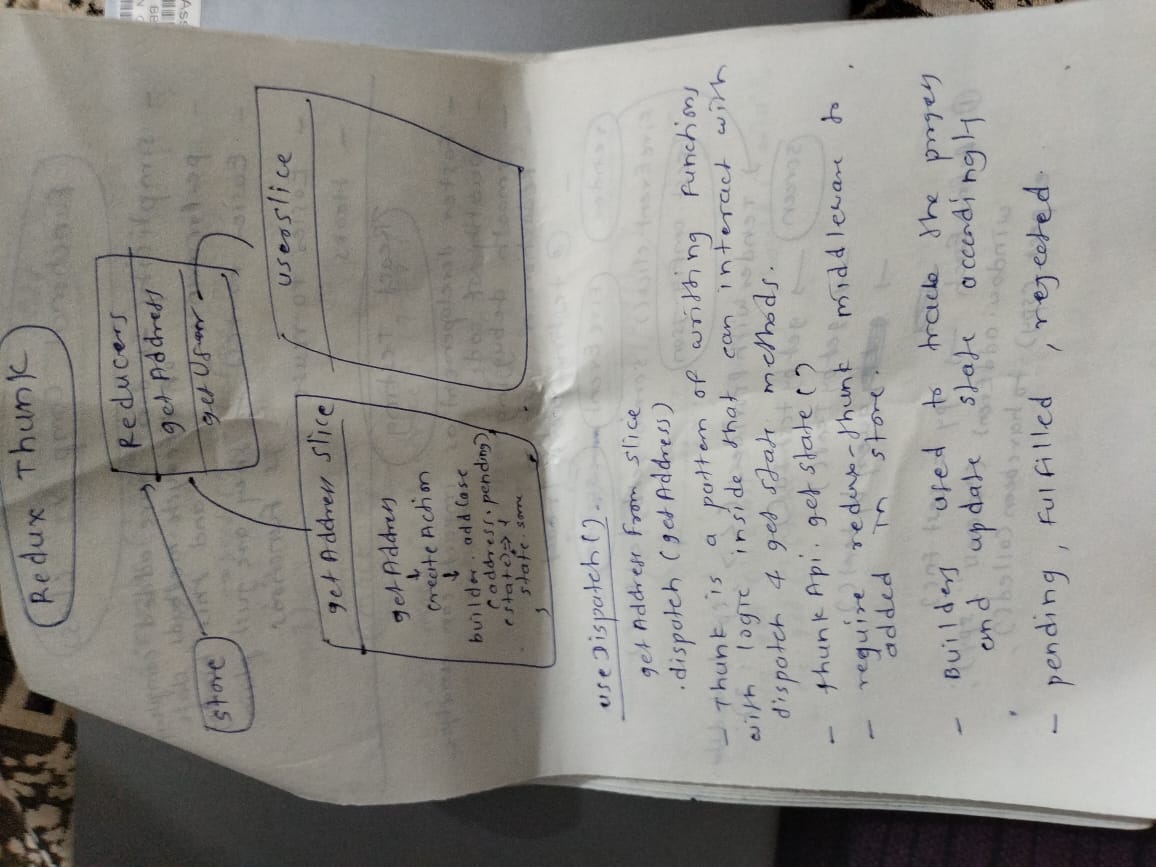 Redux Thunk
Store
Reducers
get Address
get User
get Address slice
get Address
↓
create Action
↓
builder. add Case
(address. pending)
(state) => {
state. som
userslice
use Dispatch().
get Address from slice
. dispatch (get Address)
- Thunk is a pattern of writting functions
with logic inside that can interact with
dispatch & get state methods.
- thunk Api. get state ()
- require redux-thunk middleware to
added in store.
- Builders used to track the
and update state accordingly
- pending, fulfilled, rejected.